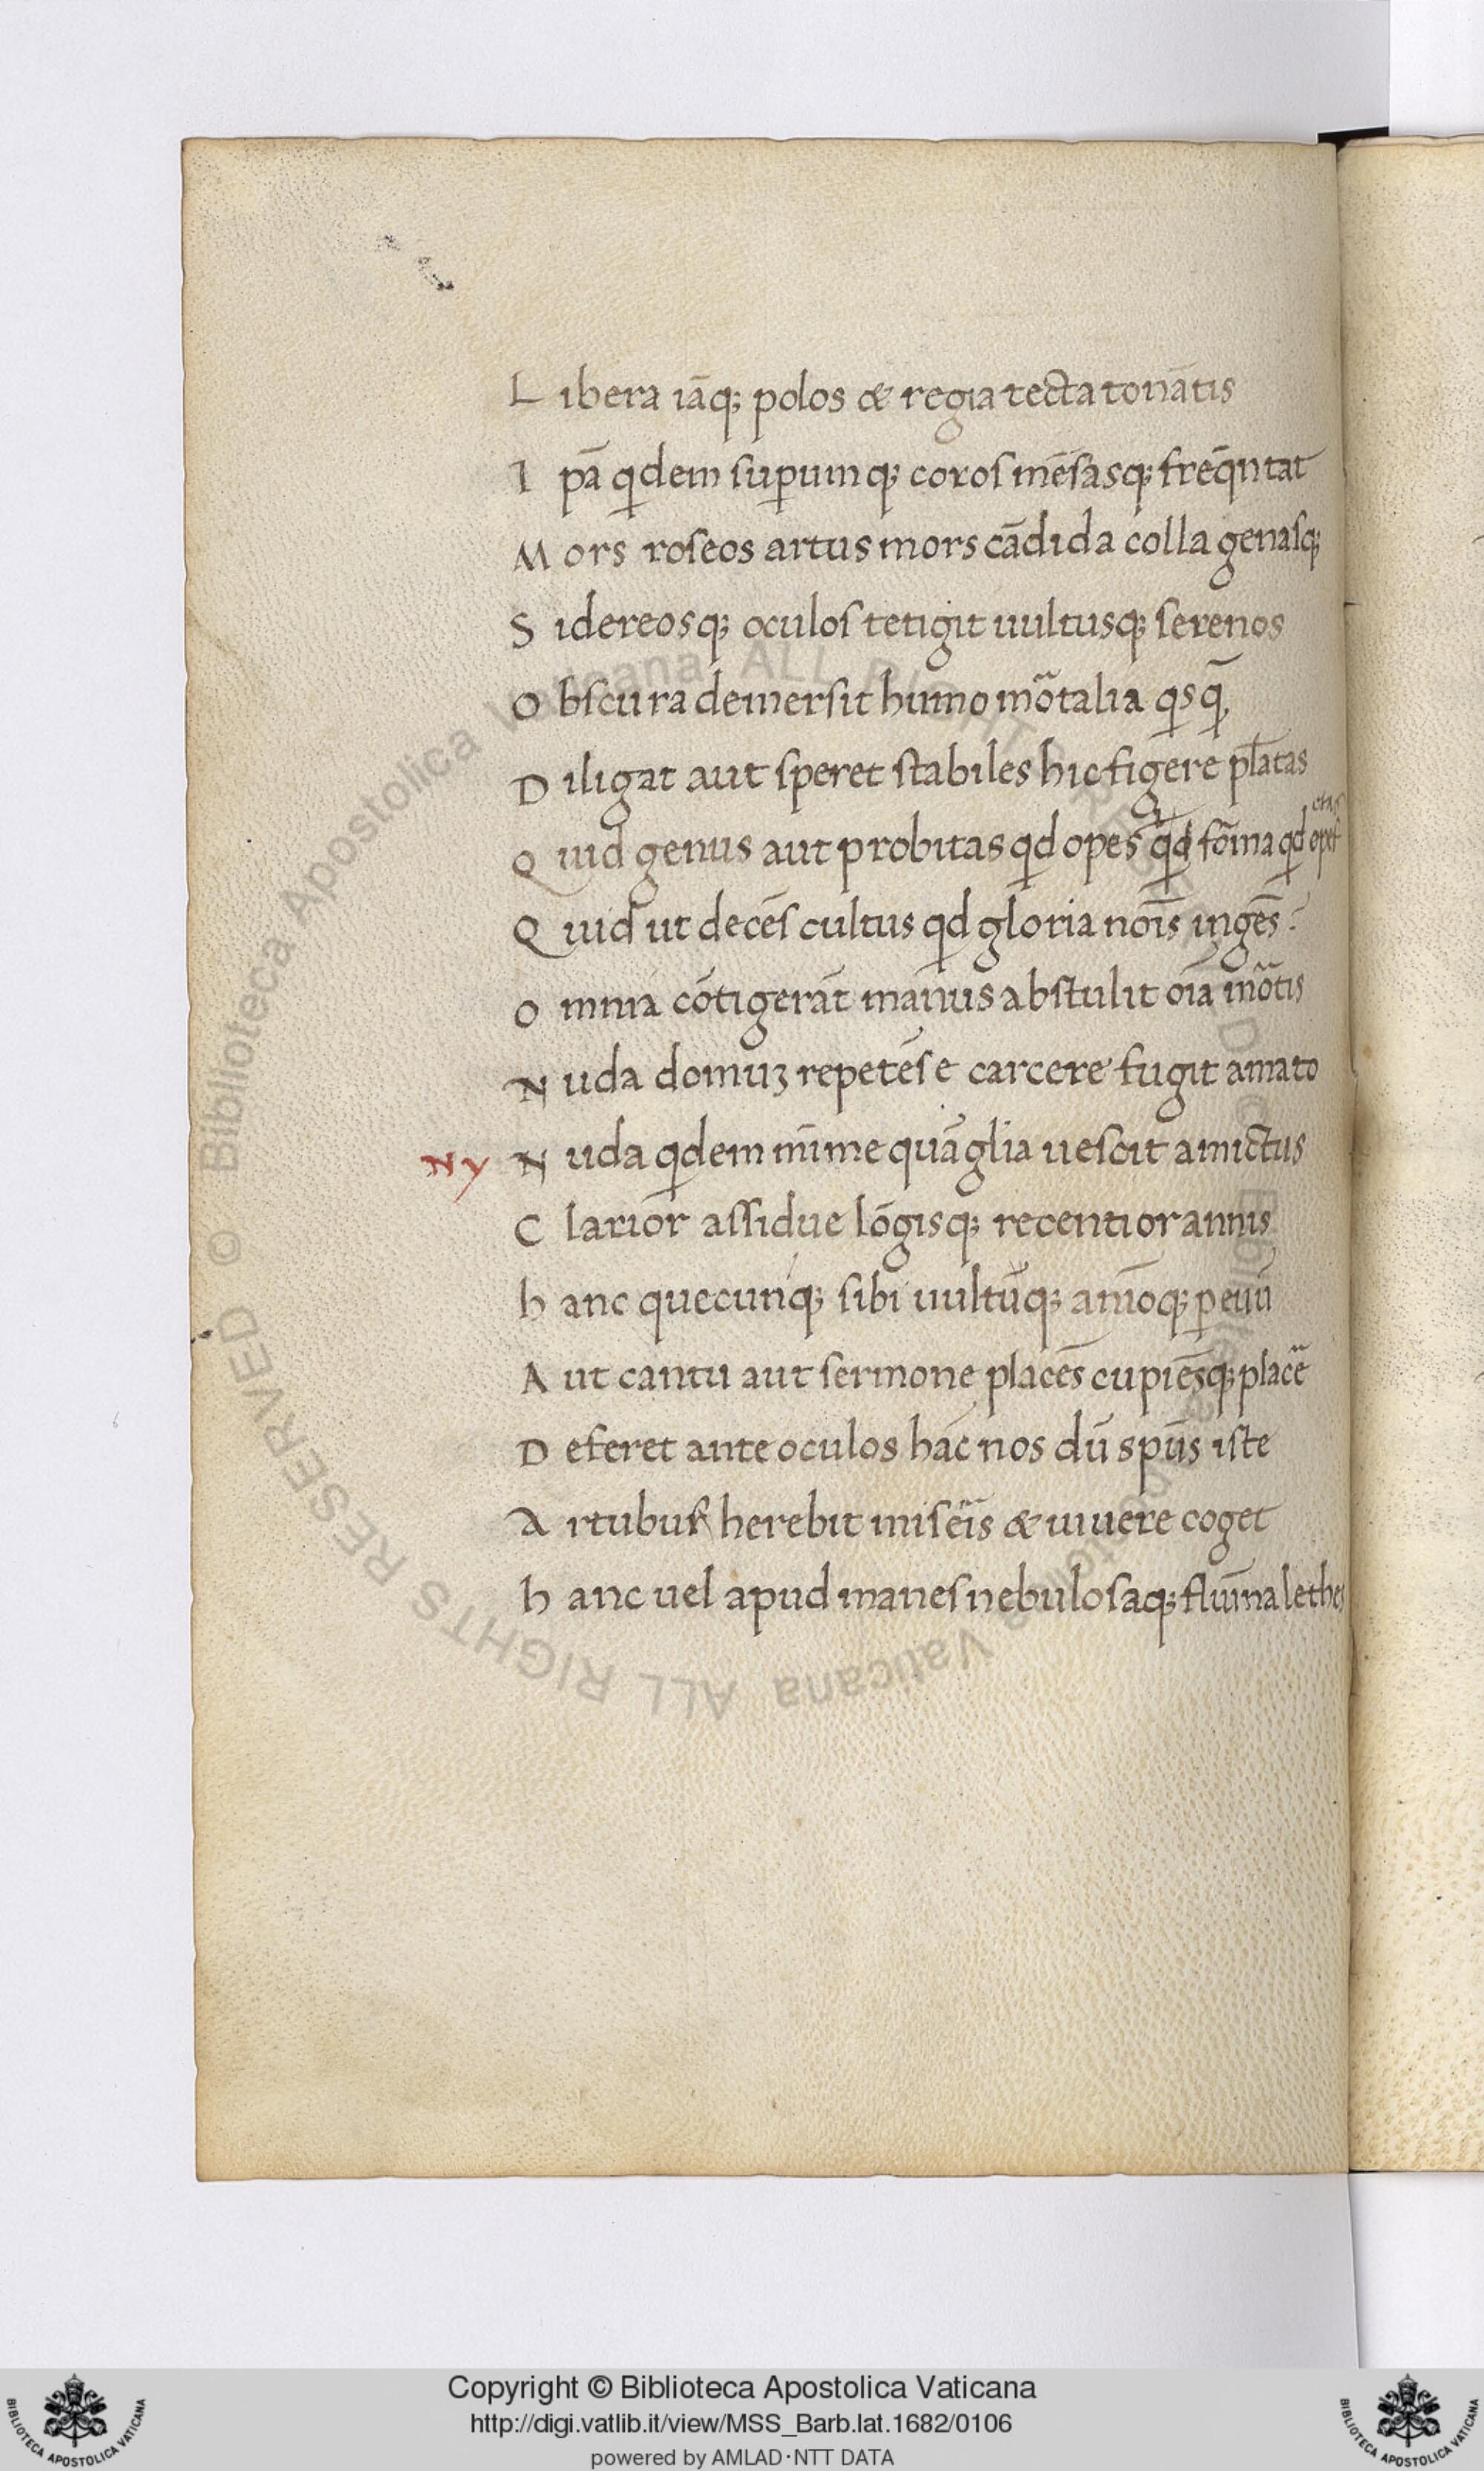 Libera iāq; polos & regia tecta tonātis
Ipā qdem superumq; coros mēsasq; freq̄ntat
Mors roseos artus mors cādida colla genasq;
Sidereosq; oculos tetigit uultusq; serenos
Obscura demersit humo mōtalia qsq̄,
Diligat aut speret stabiles hic figere platas
Quid genus aut probitas qd opes qd fōma qd
Quid ut decēs cultus qd gloria noīs ingēs?
Omnia cōtigerāt manus abstulit oīa mōtis
Nuda domuʒ repetēs e carcere fugit amato
Ny Nuda qdem mīme quā glia uescit amictus
Clarior assidue lōgisq; recentior annis
hanc quecunq; sibi uultūq; amōq; p euū
Aut cantu aut sermone placēs cupiēsq; placē
Deferet ante oculos hāc nos dū spūs iste
Artubus herebit misēis & uiuere coget
hanc uel apud manes nebulosaq; fluīna lethes
© Biblioteca Apostolica Vaticana ALL RIGHTS RESERVED
Copyright © Biblioteca Apostolica Vaticana
http://digi.vatlib.it/view/MSS_Barb.lat.1682/0106
powered by AMLAD·NTT DATA
BIBLIOTECA APOSTOLICA VATICANA
BIBLIOTECA APOSTOLICA VATICANA